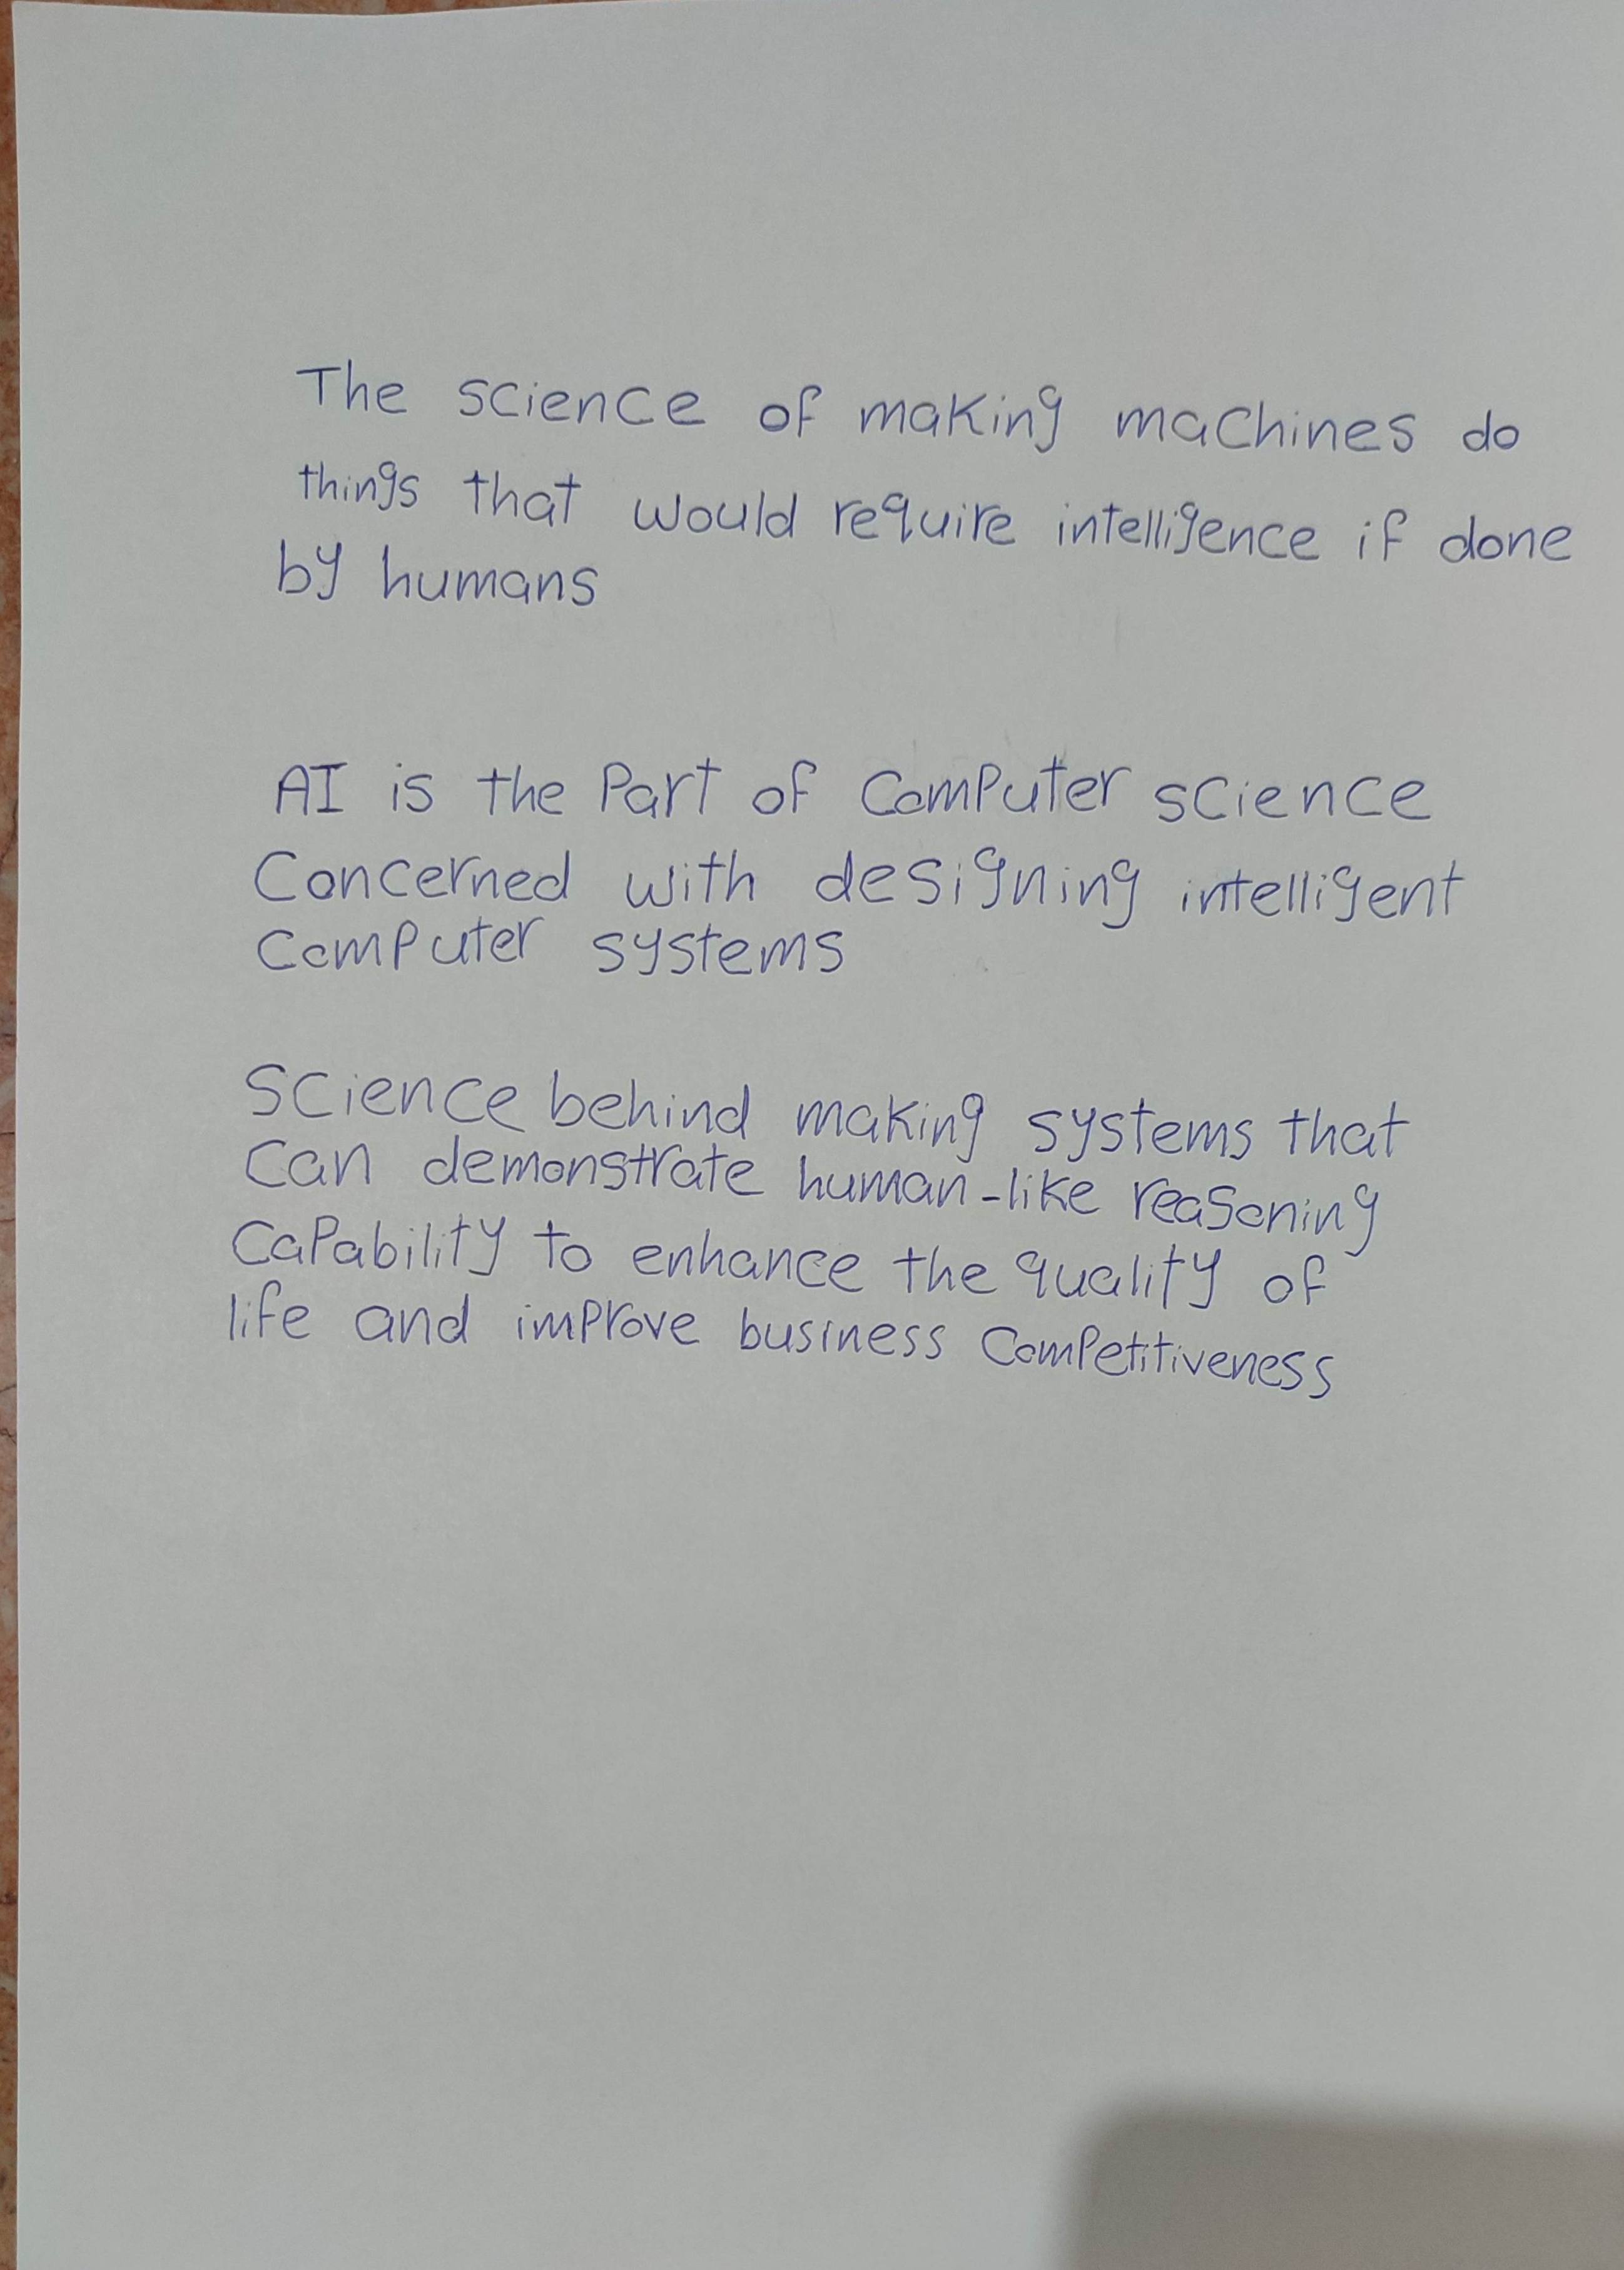 The science of making machines do
things that would require intelligence if done
by humans
AI is the Part of Computer science
Concerned with designing intelligent
Computer systems
Science behind making systems that
Can demonstrate human-like reasoning
Capability to enhance the quality of
life and improve business Competitiveness